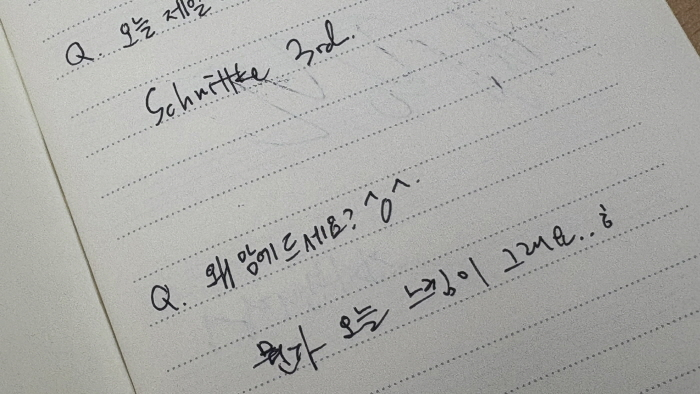 Q. 오늘 제일
Schnittke 3rd.
Q. 왜 맘에 드세요? ^o^.
뭔가 오늘 느낌이 그래요..ㅎ